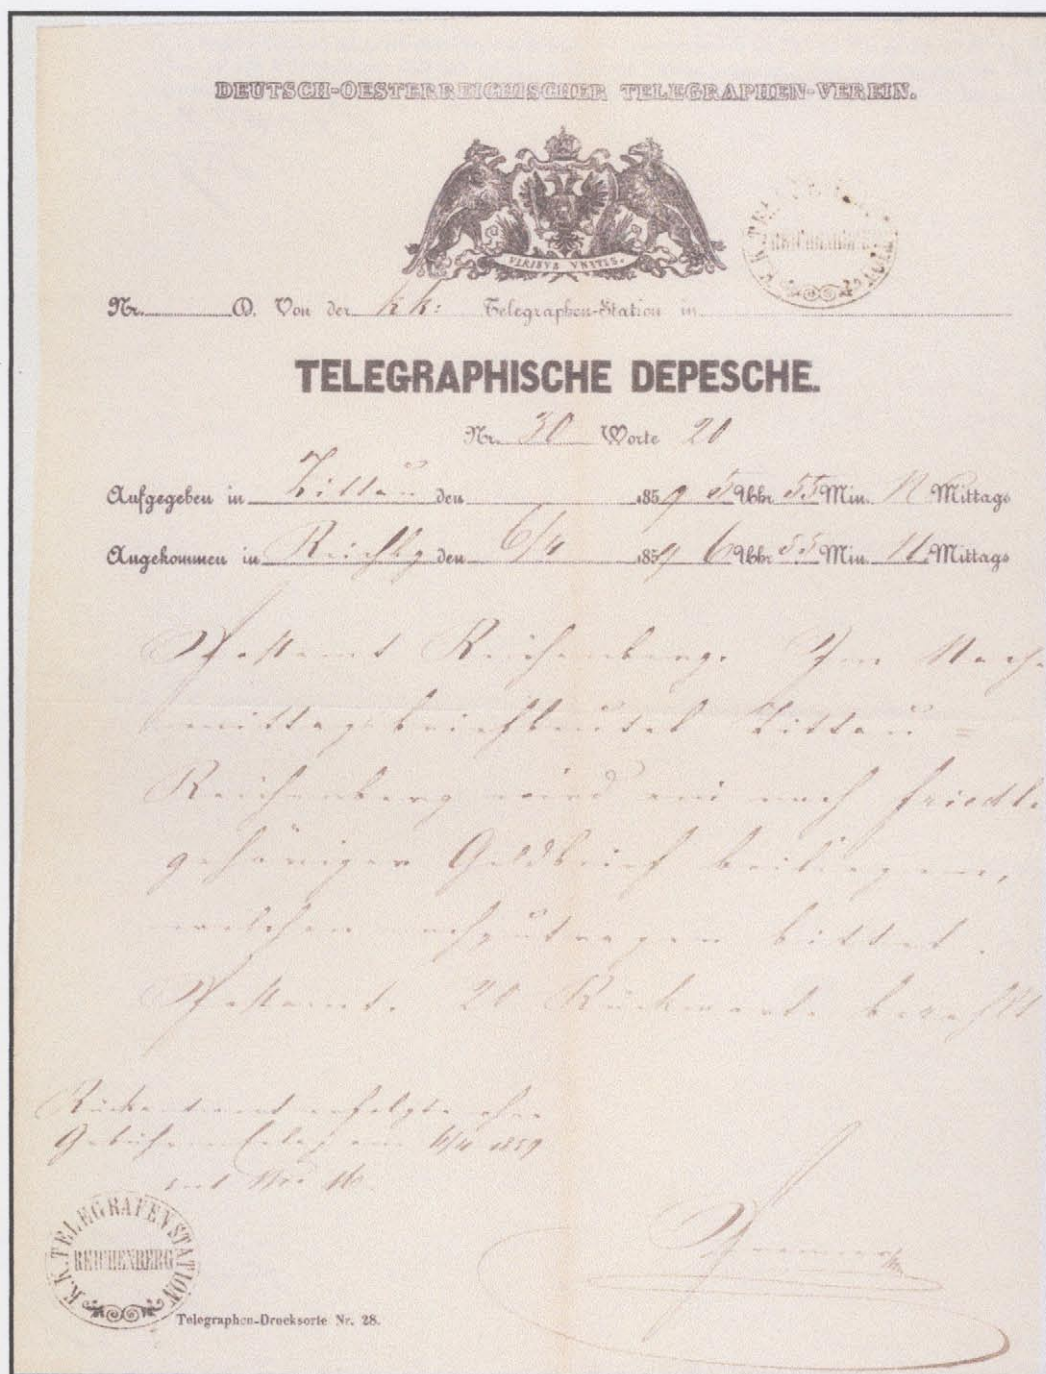 DEUTSCH-OESTERREICHISCHER TELEGRAPHEN-VEREIN.
VIRIBVS VNITIS.
K.K. TELEGRAFENSTATION
REICHENBERG
Nr. D. Von der kk: Telegraphen-Station in
TELEGRAPHISCHE DEPESCHE.
Nr. 30 Worte 20
Aufgegeben in Zittau den 1859 5 Uhr 55 Min. N Mittags
Angekommen in Reichbg den 6/4 1859 6 Uhr 55 Min. N Mittags
Postamt Reichenberg. Im Nach
mittagsbriefbeutel Zittau =
Reichenberg wird ein nach Friedla
gehöriger Geldbrief beiliegen,
welchen bittet.
Postamt. 20 Rückworte bezahlt
Rückantwort erfolgte ohne
am 6/4 1859
mit Nro 16.
K.K. TELEGRAFENSTATION
REICHENBERG
Telegraphen-Drucksorte Nr. 28.